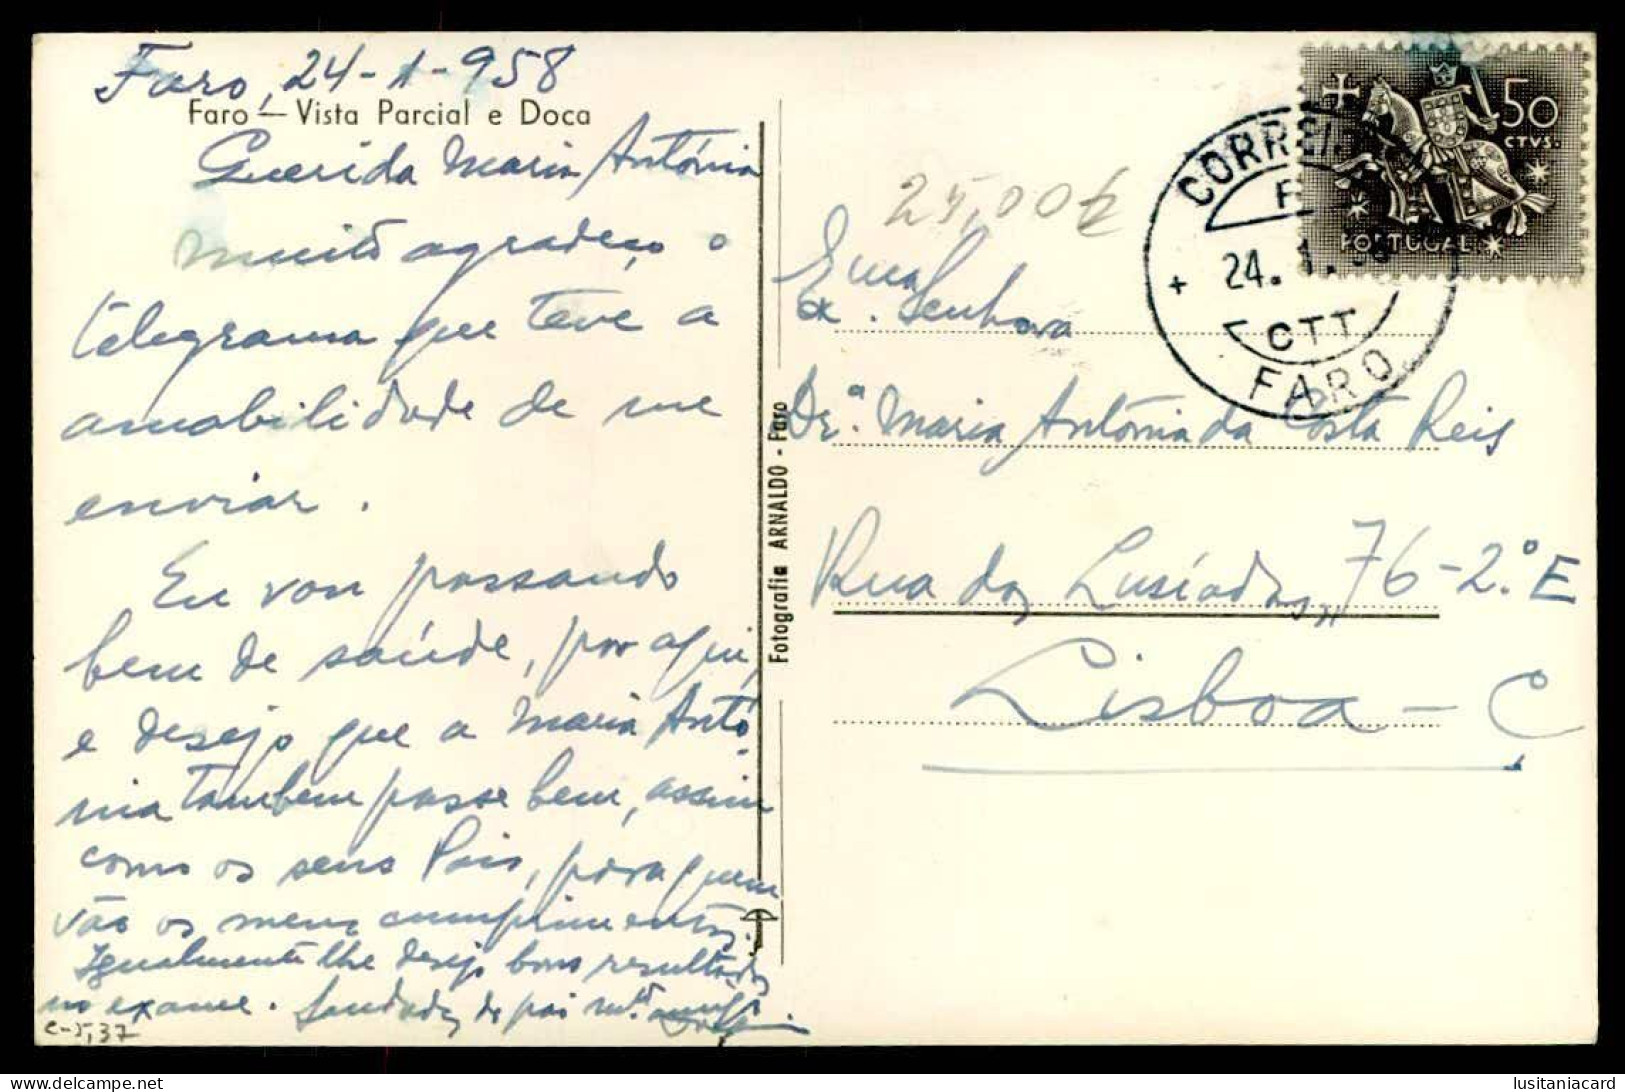 Faro, 24-1-958
Faro — Vista Parcial e Doca
Querida Maria Antónia
muito agradeço o
telegrama que teve a
amabilidade de me
enviar.
Eu vou passando
bem de saúde, por aqui,
e desejo que a Maria Antó-
nia também passe bem, assim
como os seus Pais, para quem
vão os meus cumprimentos.
Igualmente lhe desejo bons resultados
no exame. Saudades de sua mto. amiga
C-5,37
Fotografia ARNALDO - Faro
25,00€
50
CTVS.
PORTUGAL
CORREI
24. 1.
CTT
FARO
Exma. Senhora
Dr.ª Maria Antónia da Costa Reis
Rua dos Lusíadas, 76-2.º E
Lisboa - C
lusitaniacard